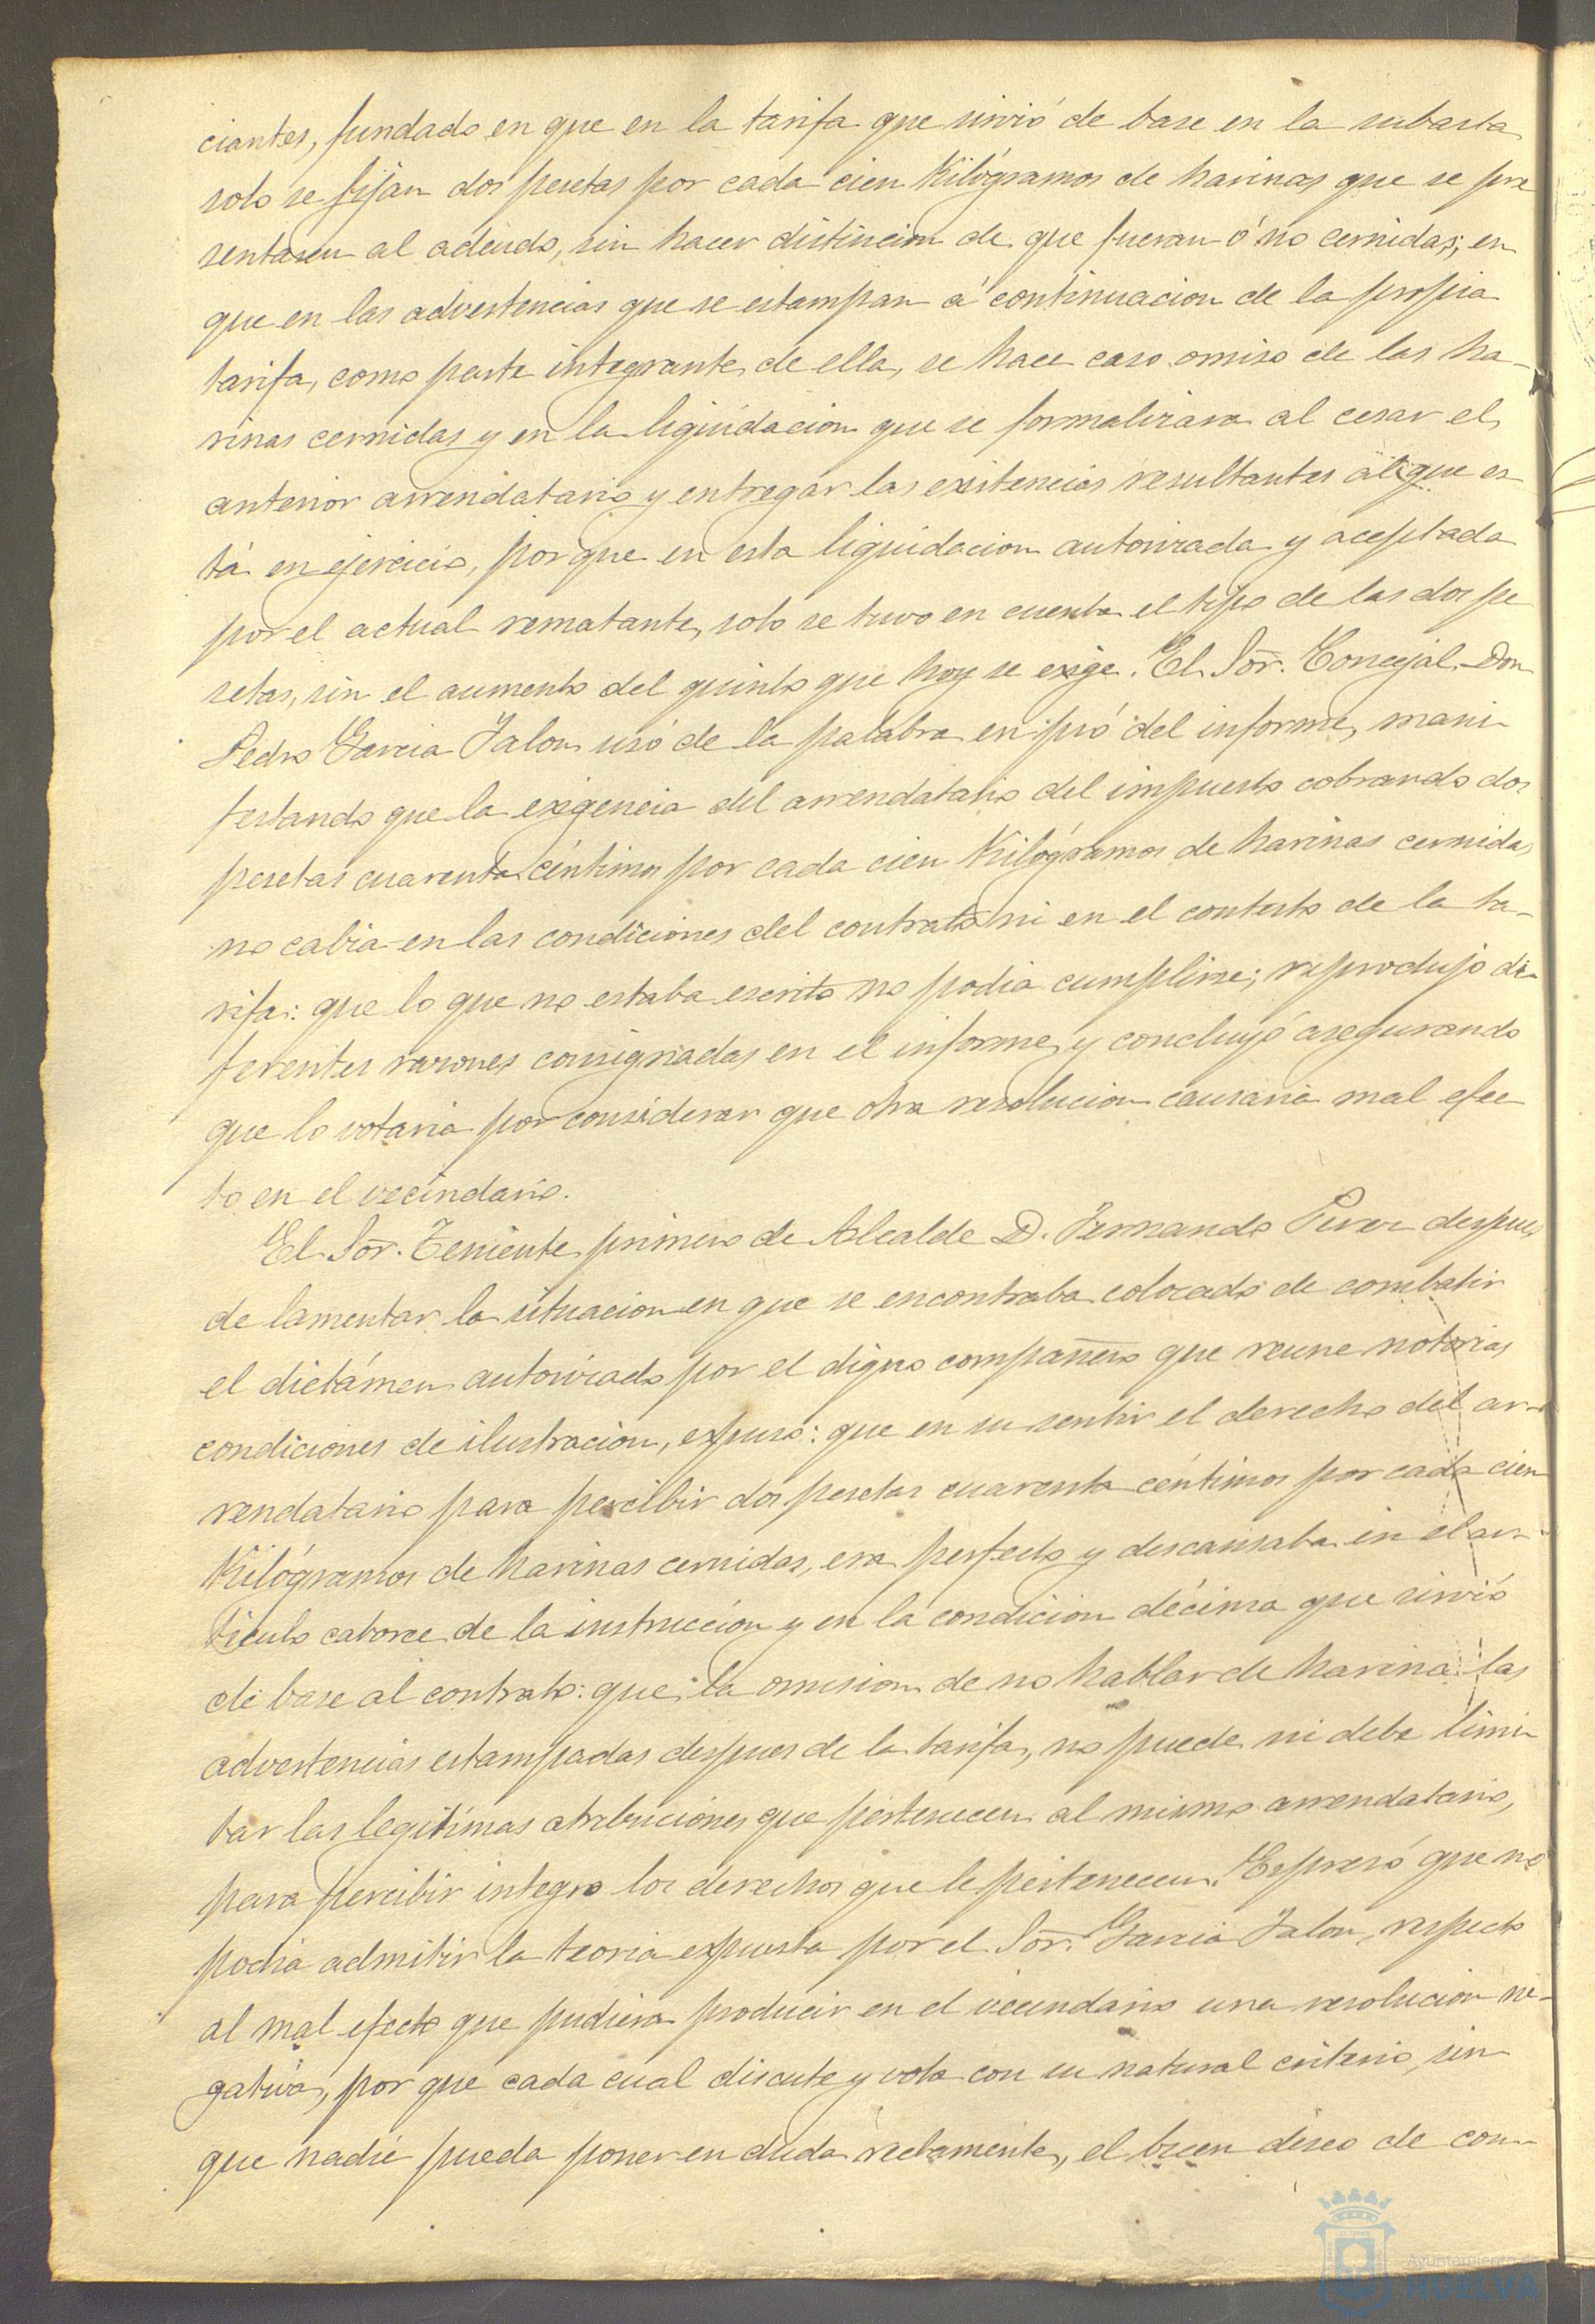 ciantes, fundado en que en la tarifa que sirvió de base en la subasta
solo se fijan dos pesetas por cada cien Kilógramos de harinas que se pre
sentasen al adeudo, sin hacer distincion de que fueran ó no cernidas; en
que en las advertencias que se estampan á continuacion de la propia
tarifa, como parte integrante de ella, se hace caso omiso de las ha-
rinas cernidas y en la liquidacion que se formalizara al cesar el
anterior arrendatario y entregar las existencias resultantes al que es-
tá en ejercicio, porque en esta liquidacion autorizada y aceptada
por el actual rematante, solo se tuvo en cuenta el tipo de las dos pe
setas, sin el aumento del quinto que hoy se exige. El Sor. Concejal Don
Pedro Garcia Jalon usó de la palabra en pró del informe, mani-
festando que la exigencia del arrendatario del impuesto cobrando dos
pesetas cuarenta céntimos por cada cien Kilógramos de harinas cernidas
no cabia en las condiciones del contrato ni en el contesto de la ta-
rifa: que lo que no estaba escrito no podia cumplirse; reprodujo di-
ferentes razones consignadas en el informe y concluyó asegurando
que lo votaria por considerar que otra resolucion causaria mal efec
to en el vecindario.
El Sor. Teniente primero de Alcalde D. Fernando Perez despues
de lamentar la situacion en que se encontraba colocado de combatir
el dictámen autorizado por el digno compañero que reune notorias
condiciones de ilustracion, expuso: que en su sentir el derecho del ar-
rendatario para percibir dos pesetas cuarenta céntimos por cada cien
Kilógramos de harinas cernidas, era perfecto y descansaba en el ar-
ticulo catorce de la instruccion y en la condicion décima que sirvió
de base al contrato: que la omision de no hablar de harina las
advertencias estampadas despues de la tarifa, no puede ni debe limi-
tar las legitimas atribuciones que pertenecen al mismo arrendatario,
para percibir integro los derechos que le pertenecen. Espresó que no
podia admitir la teoria expuesta por el Sor. Garcia Jalon, respecto
al mal efecto que pudiera producir en el vecindario una resolucion ne-
gativa, por que cada cual discute y vota con su natural criterio, sin
que nadie pueda poner en duda rectamente, el buen deseo de con-
Ayuntamiento de
HUELVA